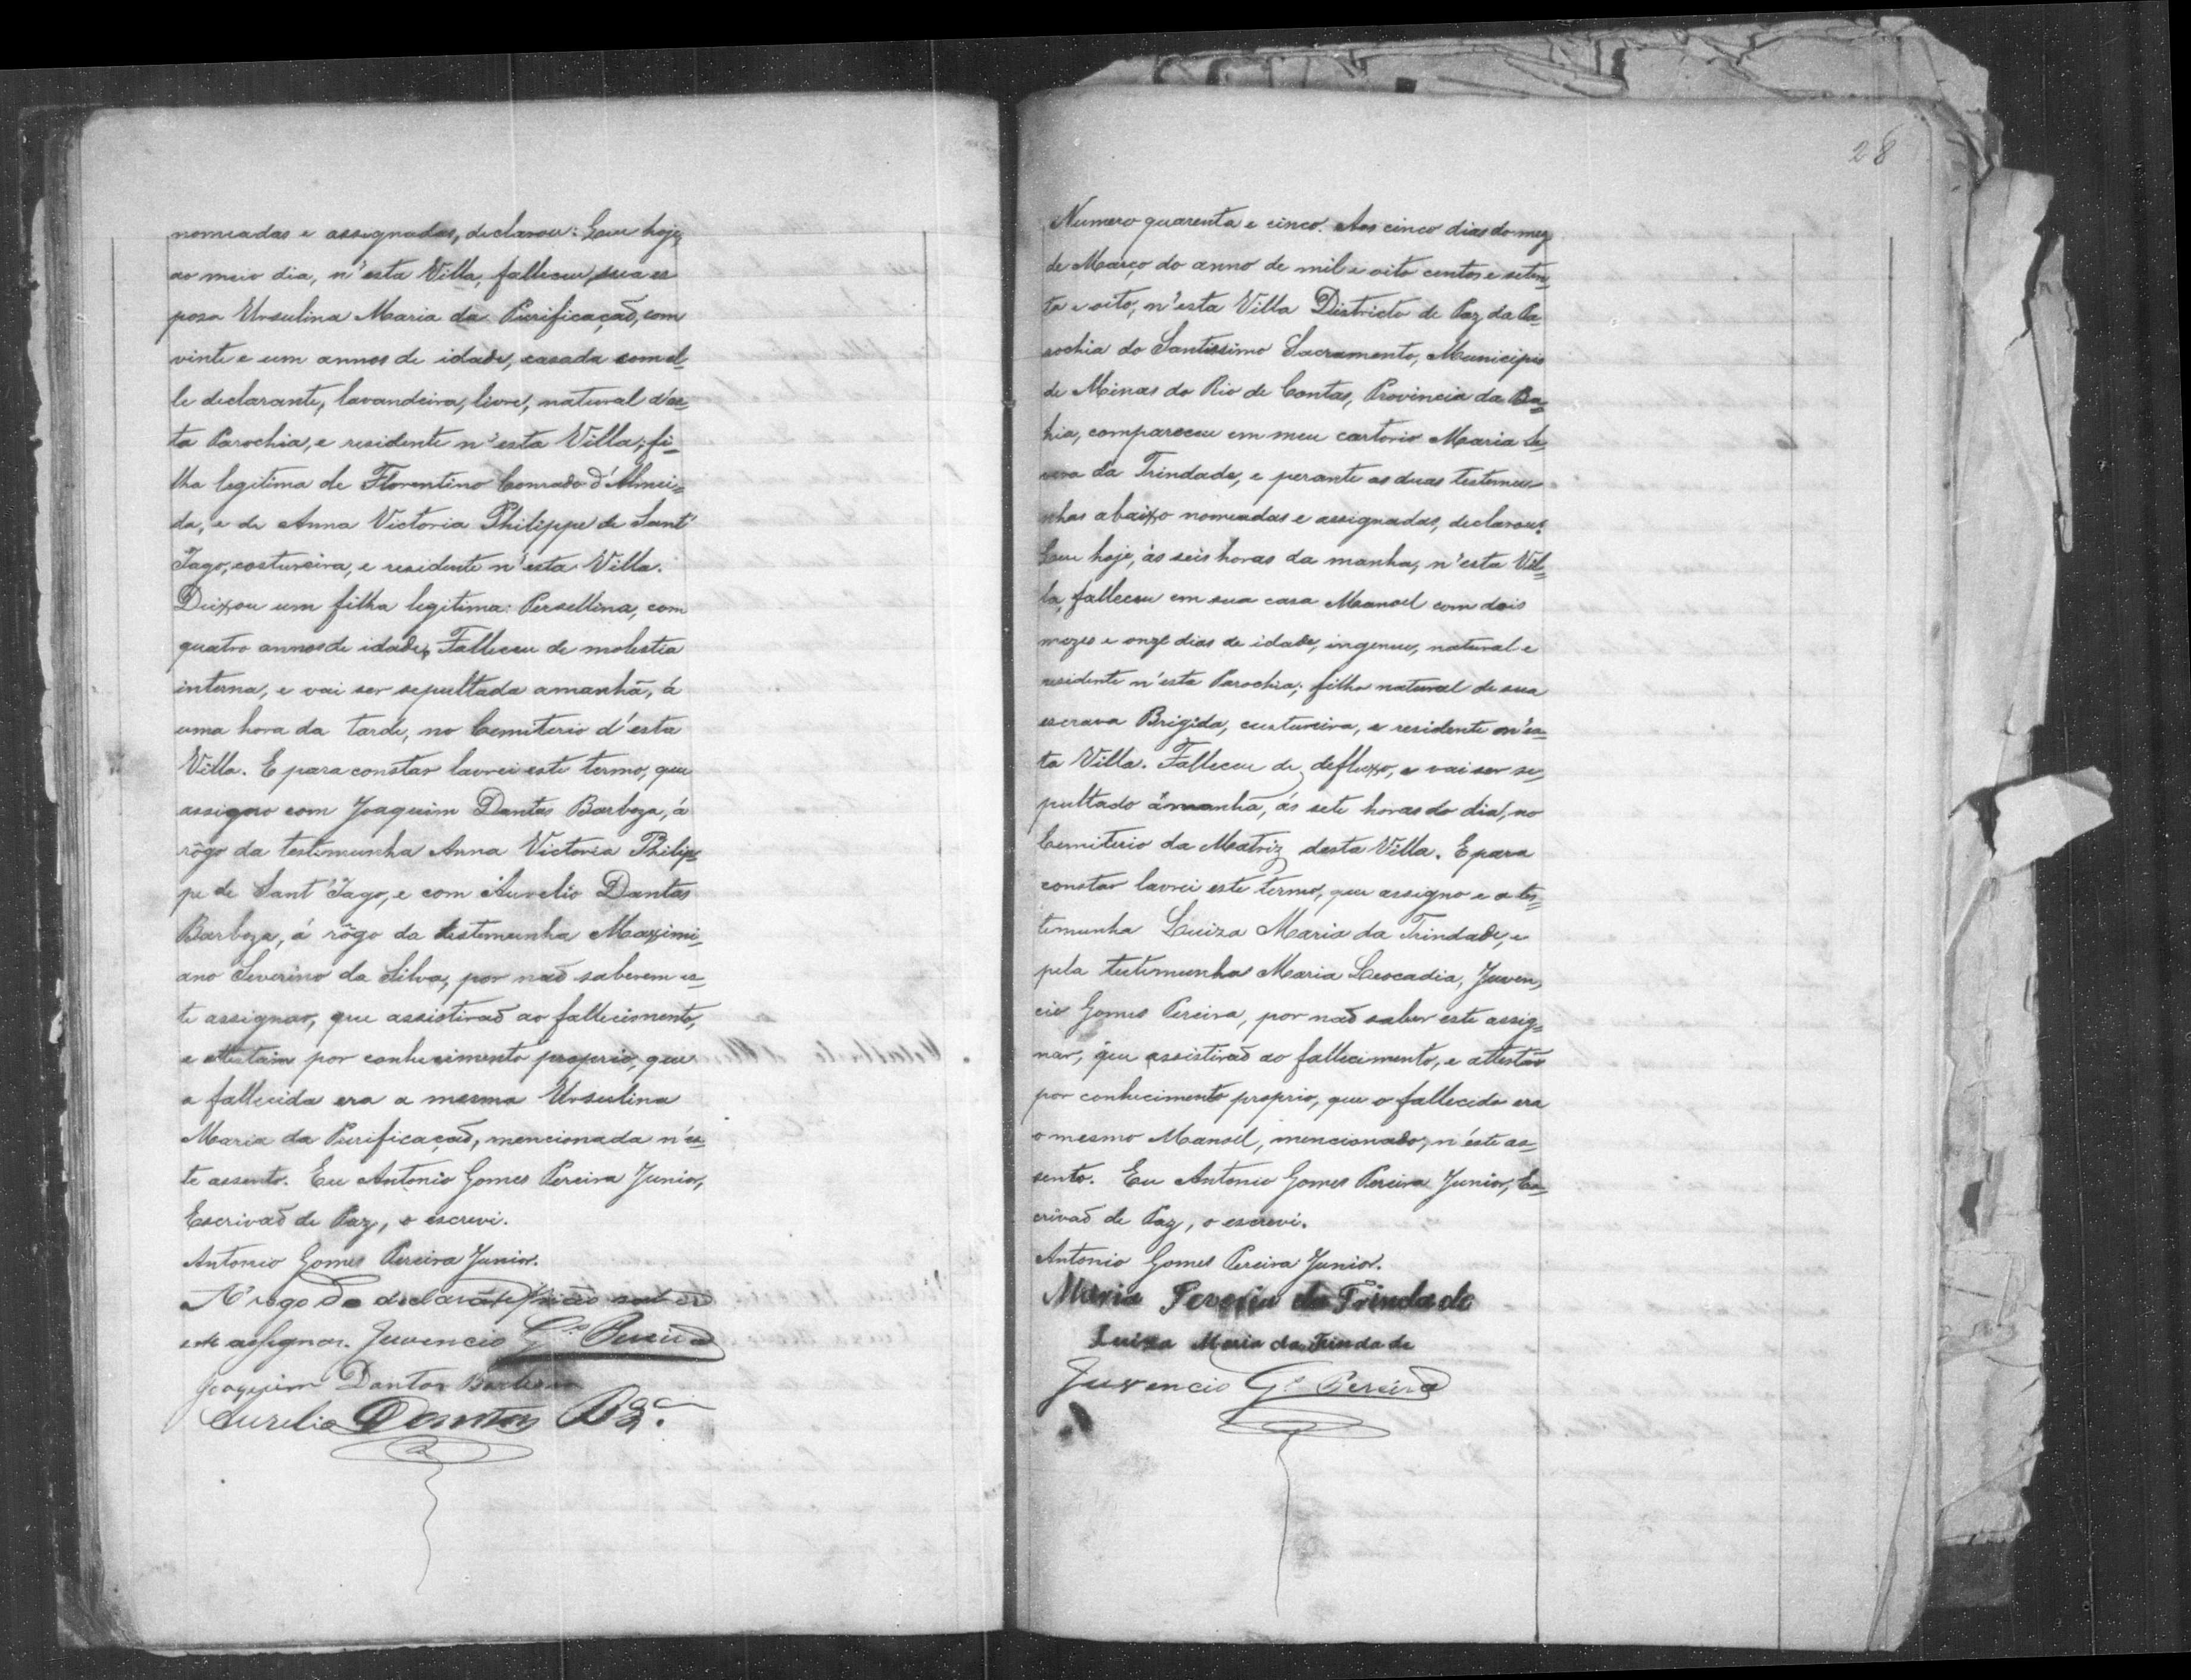 nomeadas e assignadas, declarou: Que hoje,
ao meio dia, n'esta Villa, falleceu sua es
posa Ursulina Maria da Purificação, com
vinte e um annos de idade, casada com el-
le declarante, lavandeira, livre, natural d'es-
ta Parochia, e residente n'esta Villa; fi-
lha legitima de Florentino Conrado d'Almei-
da, e de Anna Victoria Philippe de Sant'
Iago, costureira, e residente n'esta Villa.
Deixou um filha legitima: Persellina, com
quatro annos de idade, Falleceu de molestia
interna, e vai ser sepultada amanhã, á
uma hora da tarde, no Cemiterio d'esta
Villa. E para constar lavrei este termo, que
assigno com Joaquim Dantas Barboza, á
rôgo da testimunha Anna Victoria Philip-
pe de Sant'Iago, e com Aurelio Dantas
Barboza, á rôgo da testemunha Maximi-
ano Severino da Silva, por naõ saberem es-
te assignar, que assistiraõ ao fallecimento,
e attestam por conhecimento proprio, que
a fallecida era a mesma Ursulina
Maria da Purificaçaõ, mencionada n'es-
te assento. Eu Antonio Gomes Pereira Junior,
Escrivaõ de Paz, o escrevi.
Antonio Gomes Pereira Junior.
A rogo do declarante por não saber
este assignar. Juvencio G.s Pereira
Joaquim Dantas Barboza
Aurelio Dantas Bz.a
28
Numero quarenta e cinco. Aos cinco dias do mez
de Março do anno de mil e oito centos e seten-
ta e oito, n'esta Villa Districto de Paz da Pa-
rochia do Santissimo Sacramento, Municipio
de Minas do Rio de Contas, Provincia da Ba-
hia, compareceu em meu cartorio Maria Se-
vera da Trindade, e perante as duas testemu-
nhas abaixo nomeadas e assignadas, declarou:
Que hoje, ás seis horas da manha, n'esta Vil-
la, falleceu em sua casa Manoel com dois
mezes e onze dias de idade, ingenuo, natural e
residente n'esta Parochia; filho natural de sua
escrava Brigida, custureira, e residente n'es-
ta Villa. Falleceu de defluxo, e vai ser se-
pultado âmanhã, ás sete horas do dia, no
Cemiterio da Matriz desta Villa. E para
constar lavrei este termo, que assigno e a tes-
temunha Luiza Maria da Trindade, e
pela testimunha Maria Leocadia, Juven-
cio Gomes Pereira, por naõ saber este assig-
nar, que assistiraõ ao fallecimento, e attestão
por conhecimento proprio, que o fallecido era
o mesmo Manoel, mencionado, n'éste as-
sento. Eu Antonio Gomes Pereira Junior, Es-
crivaõ de Paz, o escrevi.
Antonio Gomes Pereira Junior.
Maria Severa da Trindade
Luiza Maria da Trindade
Juvencio G.s Pereira